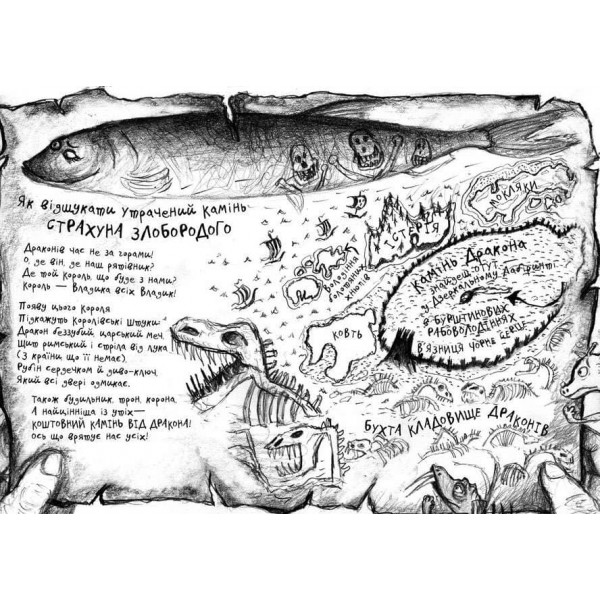 Як відшукати утрачений камінь
СТРАХУНА ЗЛОБОРОДОГО
Драконів час не за горами!
О, де він, де наш рятівник?
Де той король, що буде з нами?
Король — Владика всіх Владик!
Появу цього короля
Підкажуть королівські штуки:
Дракон беззубий, царський меч,
Щит римський і стріла від лука
(З країни що її немає),
Рубін сердечком й диво-ключ,
Який всі двері одмикає.
Також будильник, трон, корона.
А найцінніша із утіх —
КОШТОВНИЙ КАМІНЬ ВІД ДРАКОНА!
Ось що врятує нас усіх!
ПОКЛЯКИ
ІСТЕРІЯ
Володіння
болотяних
КОВТЬ
Камінь Дракона
знайдеш отут
у Дзеркальному Лабіринті
в БУРШТИНОВИХ
РАБОВОЛОДІННЯХ
В'ЯЗНИЦЯ ЧОРНЕ СЕРЦЕ
БУХТА КЛАДОВИЩЕ ДРАКОНІВ